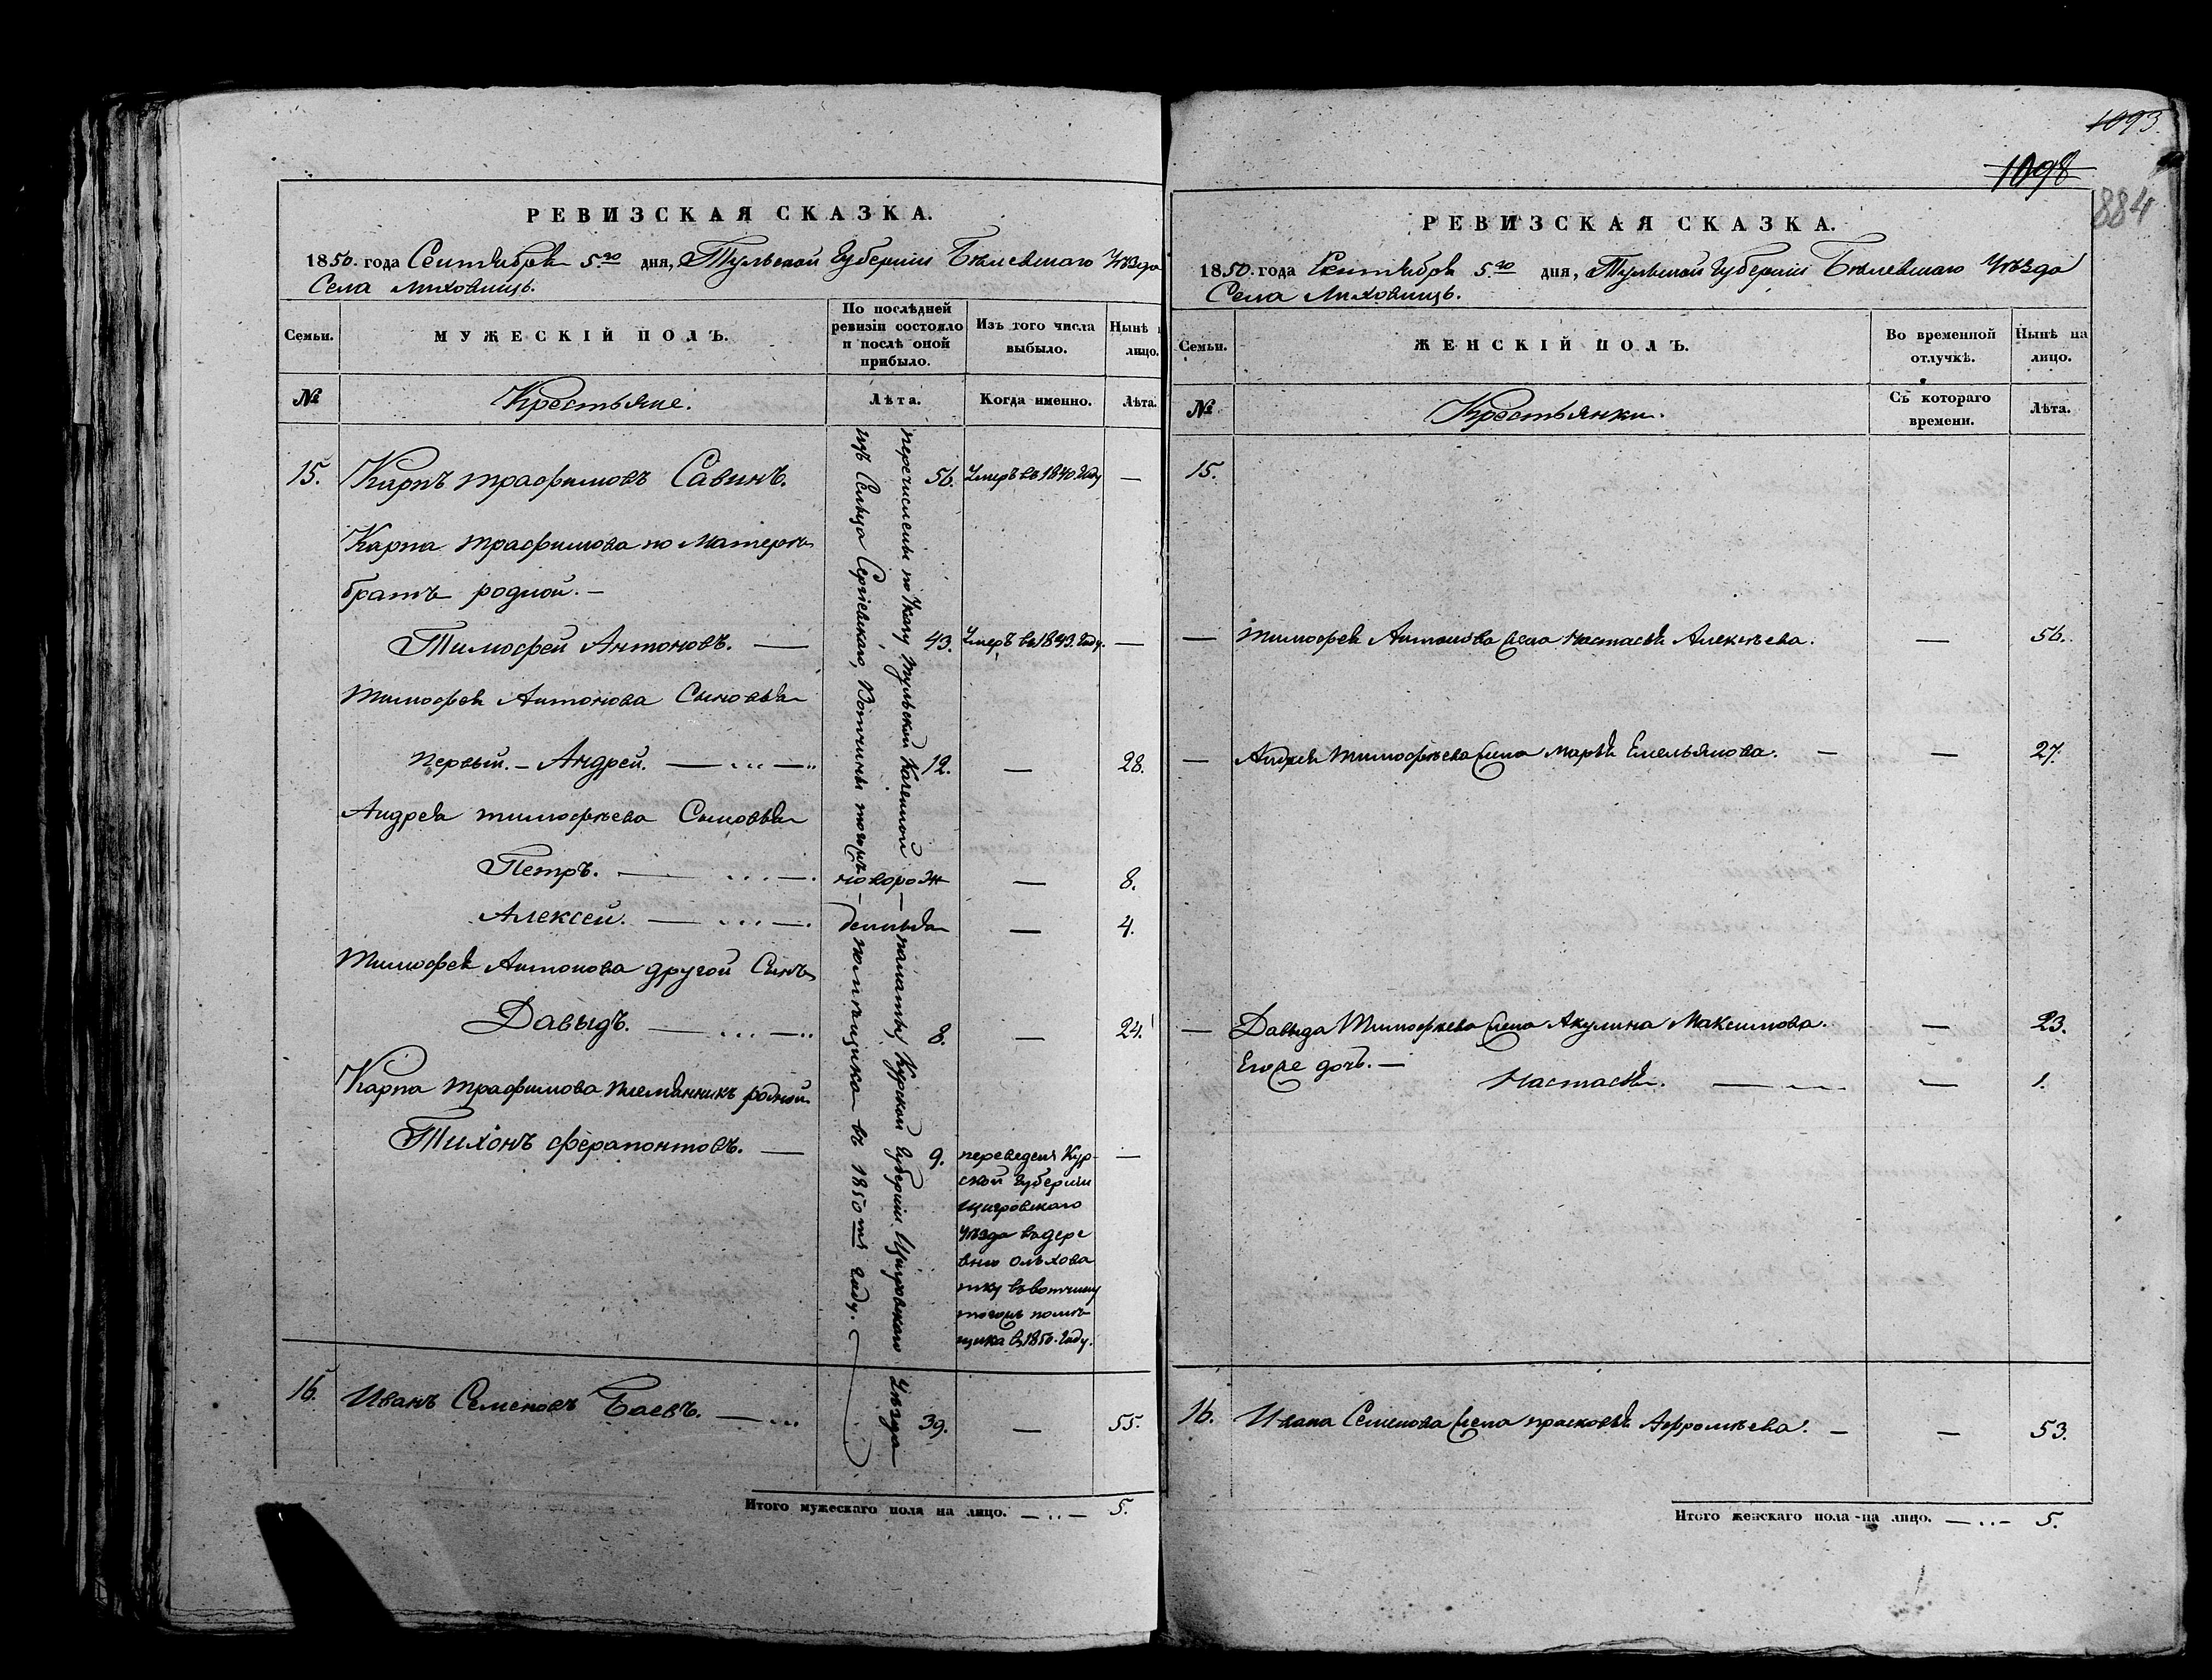 РЕВИЗСКАЯ СКАЗКА.
1850. года Сентября 5го дня, Тульской Губернии Бѣлевскаго Уѣзда
Села Миховищъ.
Семьи.
МУЖЕСКІЙ ПОЛЪ.
По послѣдней ревизіи состояло и послѣ оной прибыло.
Изъ того числа выбыло.
Нынѣ лицо.
№
Крестьяне.
Лѣта.
Когда именно.
Лѣта.
15. Карпъ трафимовъ Савинъ. 56. Умеръ въ 1840 Году —
Карпа трафимова по Матерѣ
братъ родной. —
Тимофей Антоновъ. — 43. Умеръ въ 1843. Году. —
Тимофея Антонова Сыновья
Первый. – Андрей. — 12. — 28.
Андрея тимофѣева Сыновья
Петръ. — новорож — 8.
Алексей. — — 4.
Тимофея Антонова другой Сынъ
Давыдъ. — 8. — 24.
Карпа трафимова племянникъ родной
Тихонъ ферапонтовъ. — 9. переведенъ Кур- —
ской Губернии
щигровскаго
Уѣзда въ дере
вню ольхова
тку въ вотчину
тогожъ помѣ
щика въ 1850. Году.
перечислены по Указу тульской Казенной — палаты Курской Губернии Щигровскаго Уѣзда
изъ Сельца Сергіевскаго, Вотчины тогожъ — помѣщика въ 1850мъ Году.
16. Иванъ Семеновъ Баевъ. — 39. — 55.
Итого мужескаго пола на лицо. — 5.
1093.
1098
884
РЕВИЗСКАЯ СКАЗКА.
1850. года Сентября 5го дня, Тульской Губернии Бѣлевскаго Уѣзда
Села Миховищъ.
Семьи.
ЖЕНСКІЙ ПОЛЪ.
Во временной отлучкѣ.
Нынѣ на лицо.
№
Крестьянки.
Съ котораго времени.
Лѣта.
15.
— Тимофея Антонова Жена Настасья Алексѣева. — 56.
— Андрея Тимофѣева Жена Марья Емельянова. — — 27.
— Давыда Тимофѣева Жена Акулина Максимова. — 23.
Ево же дочь. —
Настасья. — — 1.
16. Ивана Семенова Жена прасковья Афромѣева. — — 53.
Итого женскаго пола на лицо. — 5.